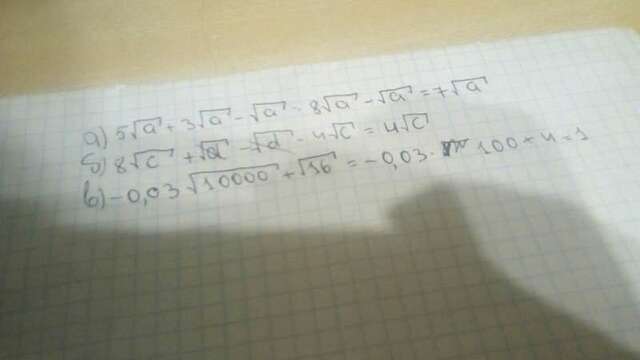 а) 5√a + 3√a - √a = 8√a - √a = 7√a
б) 8√c + √d - √d - 4√c = 4√c
в) -0,03 √10000 + √16 = -0,03 · 100 + 4 = 1